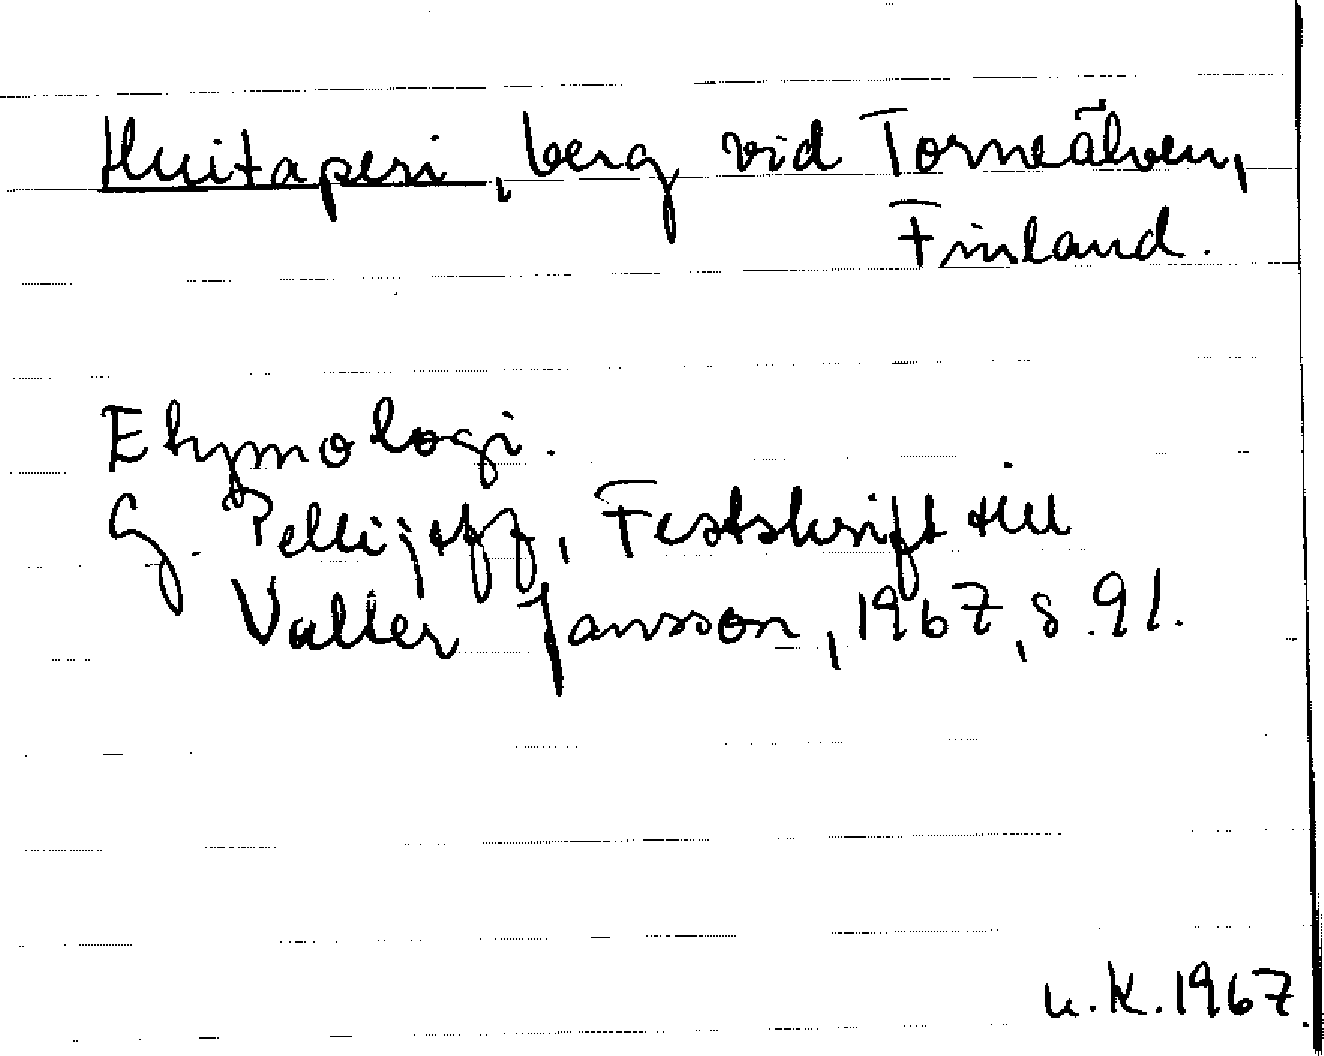 Huitaperi, berg vid Torneälven,
Finland.
Etymologi.
G. Pellijeff, Festskrift till
Valter Jansson, 1967, s. 91.
u.K. 1967.